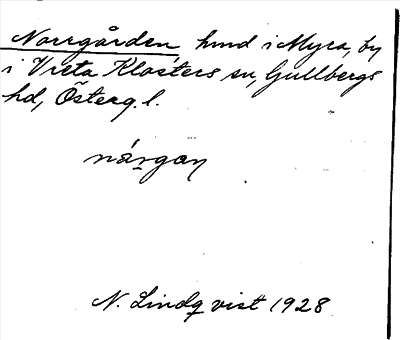 Norrgården hmd i Myra, by
i Vreta Klosters sn, Gullbergs
hd, Österg. l.
nárgaṇ
N. Lindqvist 1928